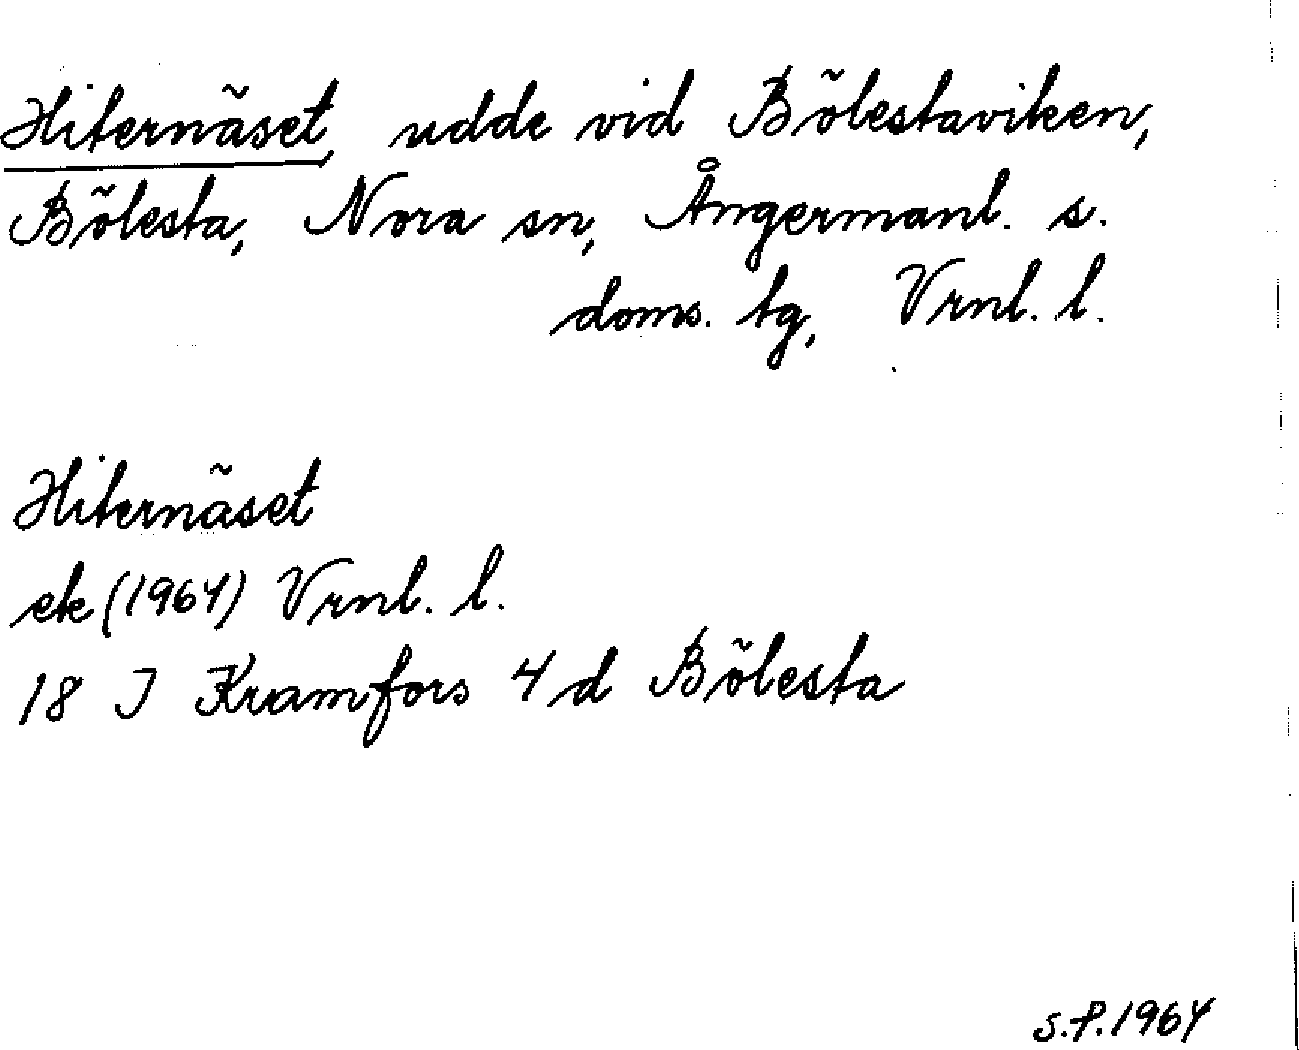 Hiternäset, udde vid Bölestaviken,
Bölesta, Nora sn, Ångermanl. s.
doms. tg, Vrnl. l.
Hiternäset
ek (1964) Vrnl. l.
18 I Kramfors 4 d Bölesta
S.P. 1964